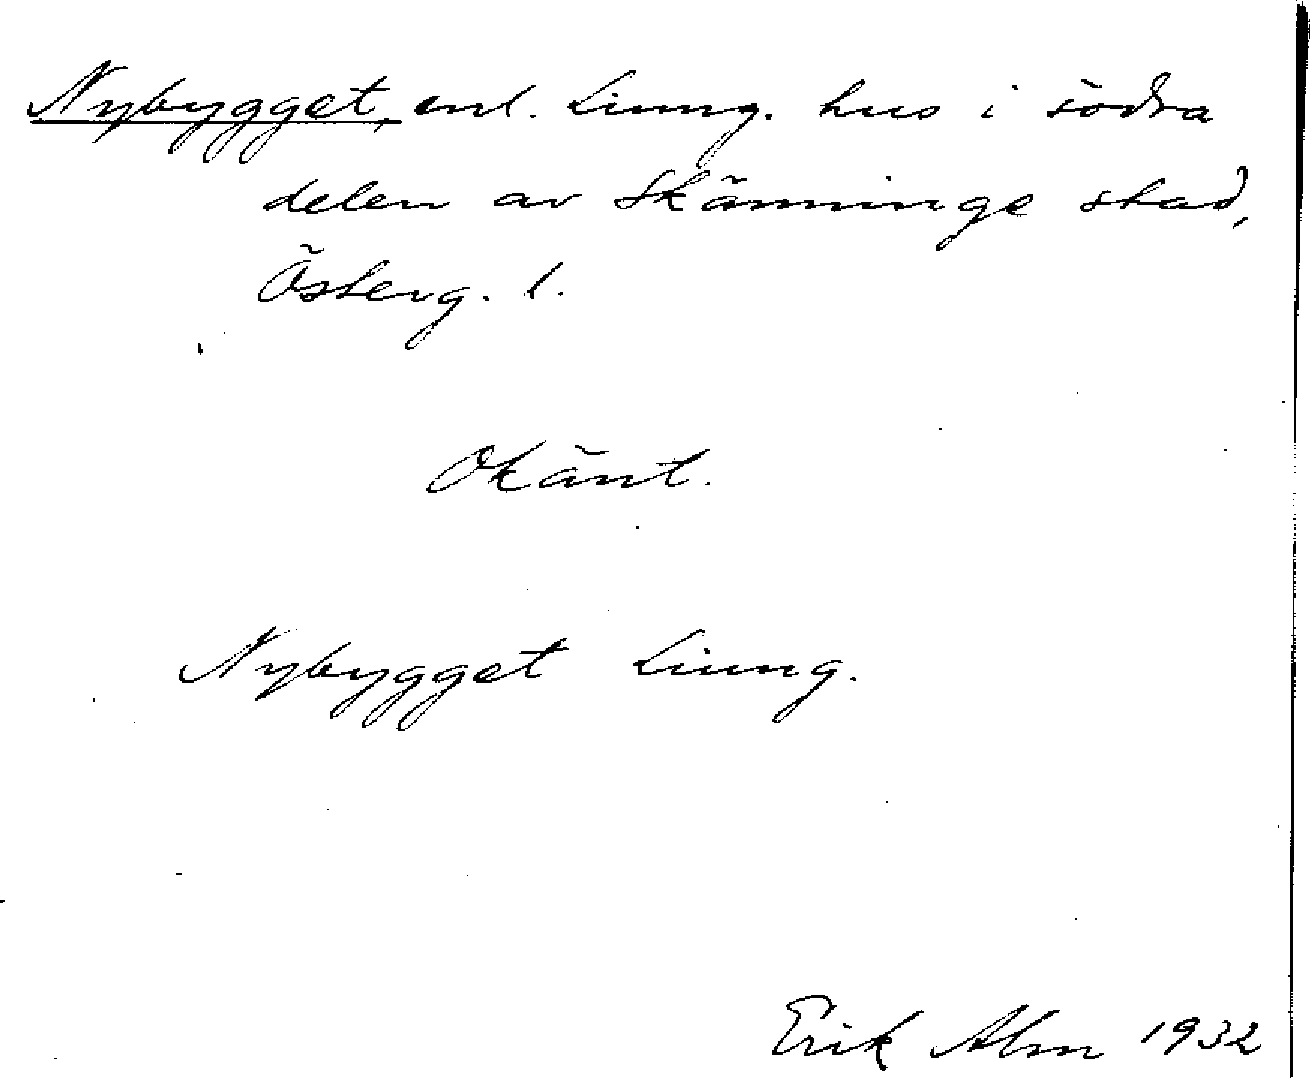 Nybygget, enl. Liung. hus i södra
delen av Skänninge stad,
Österg. l.
Okänt.
Nybygget Liung.
Erik Alm 1932